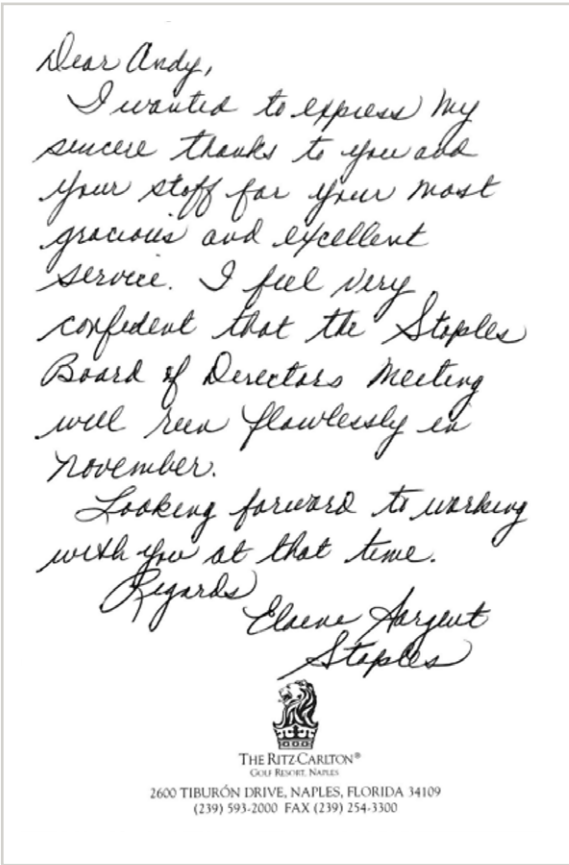 Dear Andy,
I wanted to express my
sincere thanks to you and
your staff for your most
gracious and excellent
service. I feel very
confident that the Staples
Board of Directors Meeting
will run flawlessly in
November.
Looking forward to working
with you at that time.
Regards
Elaine Sargent
Staples
THE RITZ-CARLTON®
GOLF RESORT, NAPLES
2600 TIBURÓN DRIVE, NAPLES, FLORIDA 34109
(239) 593-2000 FAX (239) 254-3300